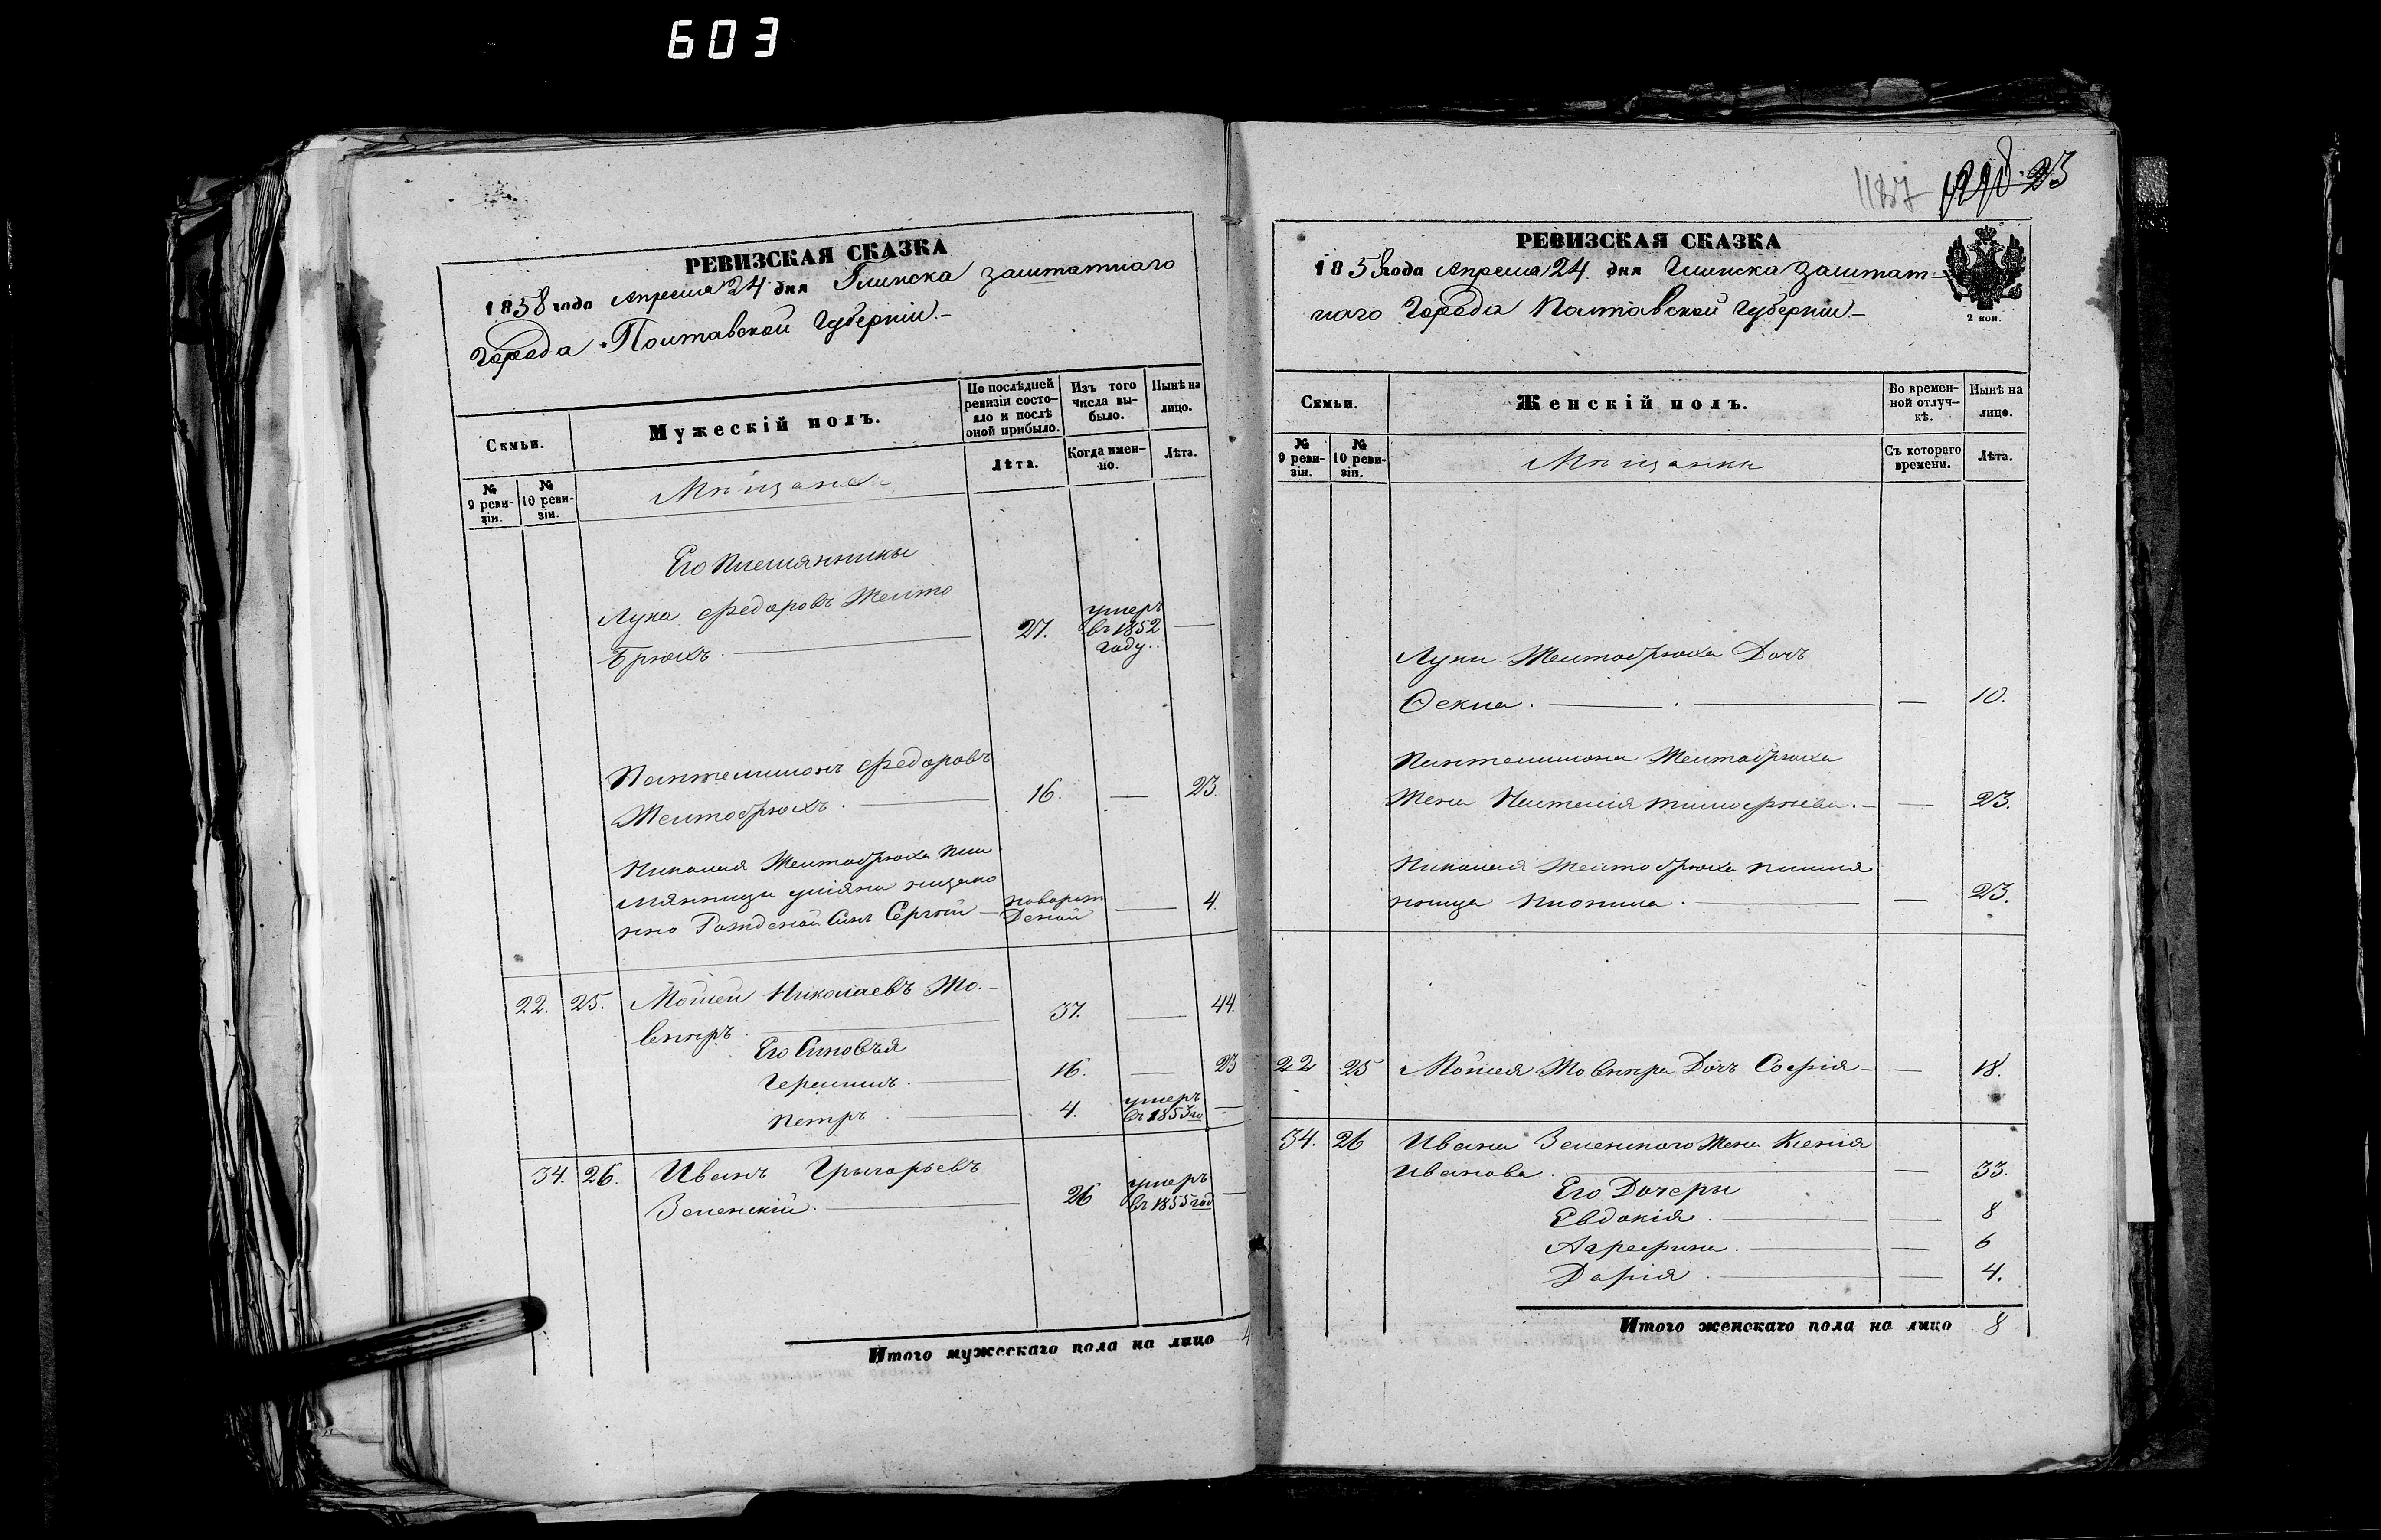 603
РЕВИЗСКАЯ СКАЗКА
1858 года Апреля 24 дня Глинска Заштатнаго
Города Полтавской Губерніи.-
Семьи.
Мужескій полъ.
По послѣдней ревизіи состояло и послѣ оной прибыло.
Изъ того числа выбыло.
Нынѣ на лицо.
№ 9 ревизіи.
№ 10 ревизіи.
Мѣщане
Лѣта.
Когда именно.
Лѣта.
Его племянники
Лука Федоровъ Желто
Брюхъ. 27. умеръ въ 1852 году. —
Пантелимонъ Федоровъ
Желтобрюхъ. 16. — 23.
Николая Желтобрюха пле
мянницы незако
нно Рожденой Синъ Сергѣй — новорож деной — 4.
22. 25. Мойсей Николаевъ Жо-
вниръ. 37. — 44.
Его Синовья
Герасимъ. 16. — 23
Петръ. 4. умеръ въ 1853 го —
34. 26. Иванъ Григорьевъ
Зеленскій. 26 умеръ въ 1855 год —
Итого мужескаго пола на лицо 4
1187 23
РЕВИЗСКАЯ СКАЗКА
1858 года Апреля 24 дня Глинска Заштат-
наго Города Полтавской Губерніи-
2 коп.
Семьи.
Женскій полъ.
Во временной отлучкѣ.
Нынѣ на лицо.
№ 9 ревизіи.
№ 10 ревизіи.
Мѣщанки
Съ котораго времени.
Лѣта.
Луки Желтобрюха Дочъ
Ѳекла. — 10.
Пантелимона Желтобрюха
Жена Наталія Тимофѣева. — 23.
Николая Желтобрюха племя
ница — 23.
22 25 Мойсея Жовнира Дочъ Софія — 18.
34. 26 Ивана Зеленского Жена Ксенія
Иванова. — 33.
Его Дочери
Евдокія. — 8
Агрефина. — 6
Дарія. — 4.
Итого женскаго пола на лицо 8